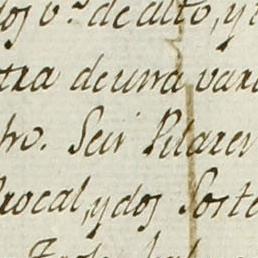 dos v.ª de alto, y
tra de una vara
ho. Seis Pilares
Brocal, y dos Porte